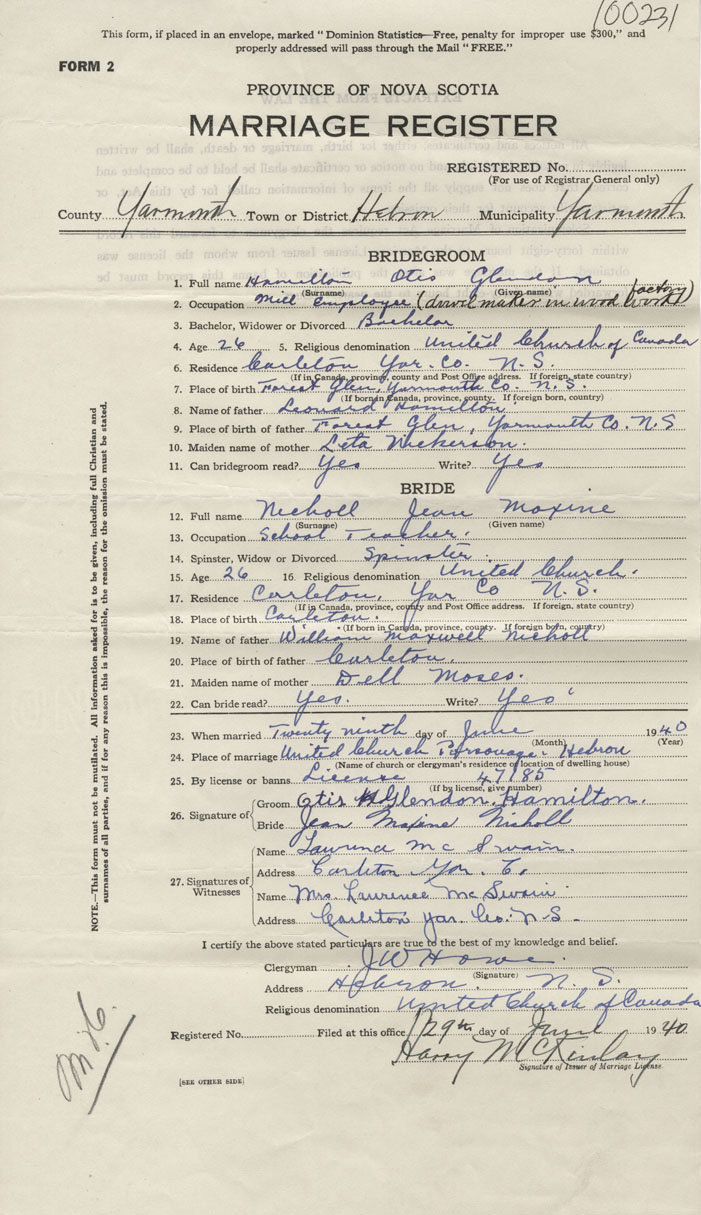 100231
This form, if placed in an envelope, marked "Dominion Statistics—Free, penalty for improper use $300," and
properly addressed will pass through the Mail "FREE."
FORM 2
PROVINCE OF NOVA SCOTIA
MARRIAGE REGISTER
REGISTERED No.
(For use of Registrar General only)
County Yarmouth Town or District Hebron Municipality Yarmouth
BRIDEGROOM
1. Full name Hamilton Otis Glendon
(Surname) (Given name)
2. Occupation Mill employee (dowel maker in wood factory work)
3. Bachelor, Widower or Divorced Bachelor
4. Age 26 5. Religious denomination United Church of Canada
6. Residence Carleton Yar. Co. N.S.
(If in Canada, province, county and Post Office address. If foreign, state country)
7. Place of birth Forest Glen, Yarmouth Co. N.S.
(If born in Canada, province, county. If foreign born, country)
8. Name of father Leonard Hamilton
9. Place of birth of father Forest Glen, Yarmouth Co. N.S
10. Maiden name of mother Leta Nickerson.
11. Can bridegroom read? Yes Write? Yes
BRIDE
12. Full name Nicholl Jean Maxine
(Surname) (Given name)
13. Occupation School Teacher.
14. Spinster, Widow or Divorced Spinster.
15. Age 26 16. Religious denomination United Church.
17. Residence Carleton, Yar Co N.S.
(If in Canada, province, county and Post Office address. If foreign, state country)
18. Place of birth Carleton.
(If born in Canada, province, county. If foreign born, country)
19. Name of father William Maxwell Nicholl
20. Place of father Carleton.
21. Maiden name of mother Dell Moses.
22. Can bride read? Yes. Write? Yes
23. When married Twenty ninth day of June 1940
(Month) (Year)
24. Place of marriage United Church Parsonage. Hebron
(Name of church or clergyman's residence or location of dwelling house)
25. By license or banns License 47185
(If by license, give number)
26. Signature of
Groom Otis Glendon Hamilton.
Bride Jean Maxine Nicholl
27. Signatures of Witnesses
Name Laurence McSwain.
Address Carleton Yar. C.
Name Mrs. Laurence McSwain
Address Carleton Yar. Co. N.S.
I certify the above stated particulars are true to the best of my knowledge and belief.
Clergyman J W Howe.
(Signature)
Address Hebron, N.S.
Religious denomination United Church of Canada
Registered No. Filed at this office 29th day of June 1940
Harry McKinlay
Signature of Issuer of Marriage License
[SEE OTHER SIDE]
NOTE.—This form must not be mutilated. All information asked for is to be given, including full Christian and
surnames of all parties, and if for any reason this is impossible, the reason for the omission must be stated.